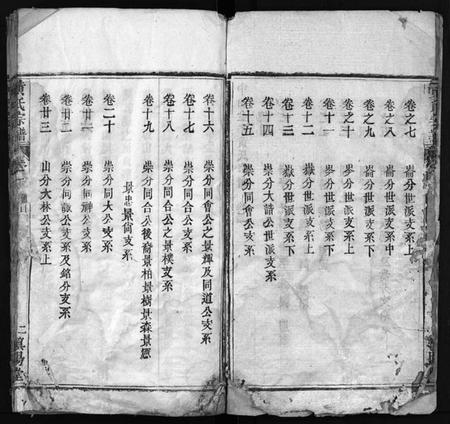 卷之七 崙分世派支系上
卷之八 崙分世派支系中
卷之九 崙分世派支系下
卷之十 岑分世派支系上
卷十一 岑分世派支系下
卷十二 嶽分世派支系上
卷十三 嶽分世派支系下
卷十四 崇分大諮公世派支系
卷十五 崇分同
卷十六 崇分同會公之景輝及同道公支系
卷十七 崇分同合公支系
卷十八 崇分同合公之景樸支系
卷十九 崇分同合公後裔景柏景樹景森景經
景忠景尙支系
卷二十 崇分同大公支系
卷廿一 崇分同神公支系
卷廿二 崇分同 公支系及銘分支系
卷廿三 山分大林公支系上
黃氏宗譜
二慎陽堂